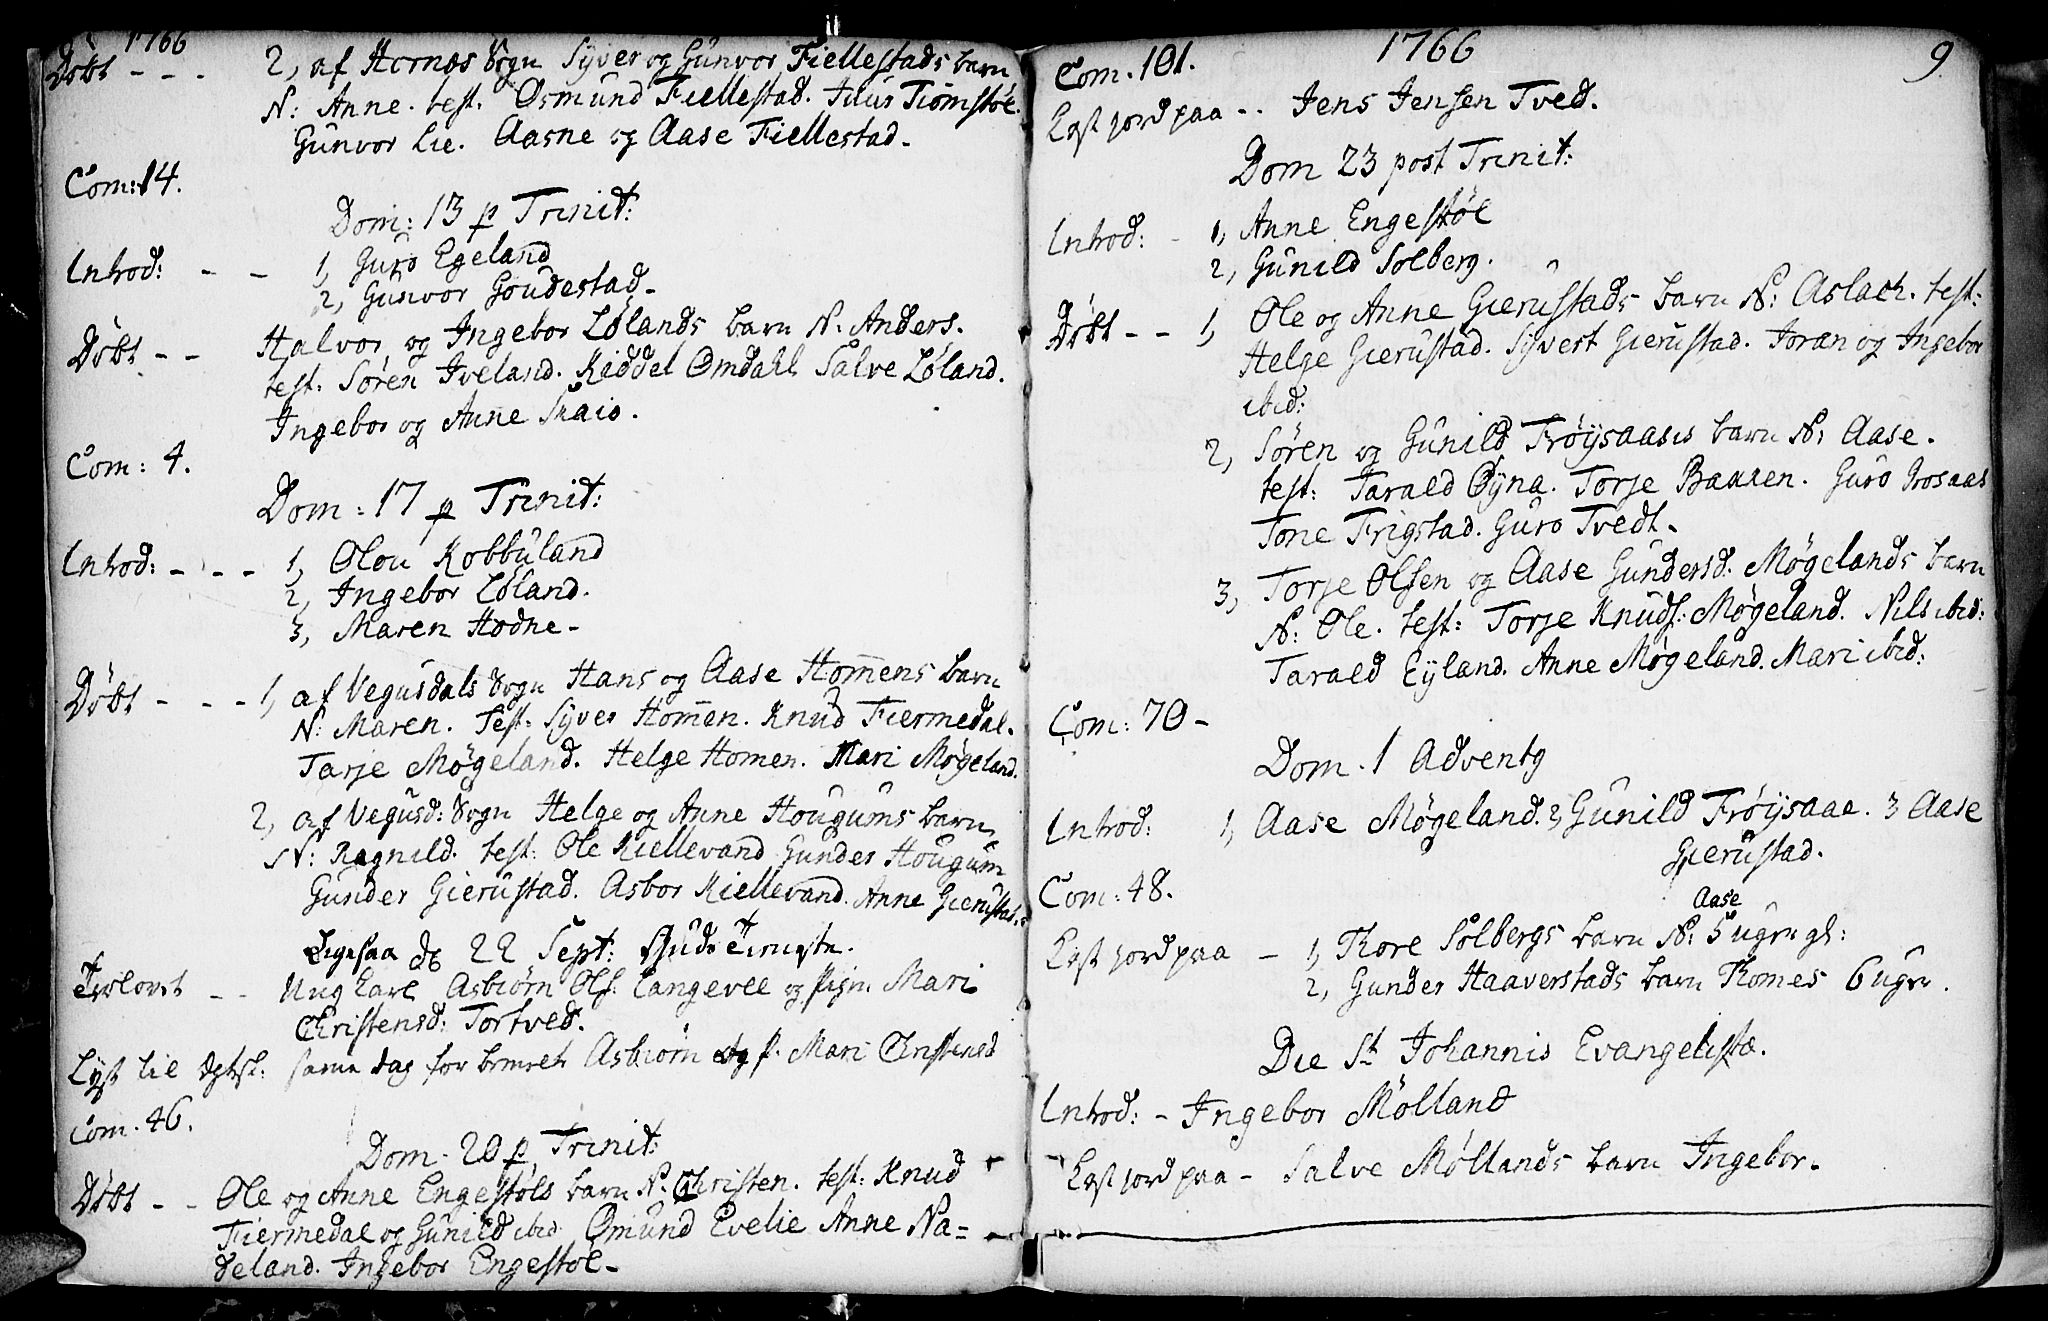 1766
Døbt - - - 2, af Hornæs Sogn Syver og Gunvor Fiellestads barn
N: Anne. test. Osmund Fiellestad. Tiomstøl.
Gunvor Lie. Aasne og Aase Fiellestad.
Com: 14.
Dom: 13 p Trinit:
Introd: - - 1, Guro Egeland
2, Gunvor Goudestad.
Døbt - - Halvor og Ingebor Lølands barn N: Anders.
test. Søren Iveland. Kiddel Omdahl Salve Løland.
Ingebor og Anne Skaio.
Com: 4.
Dom: 17 p Trinit:
Introd: - - - 1, Olou Kobbuland
2, Ingebor Løland.
3, Maren Hodne.
Døbt - - - 1, af Vegusdals Sogn Hans og Aase Hom̅ens barn
N: Maren. Test: Syver Hom̅en. Knud Fiermedal.
Tarje Møgeland. Helge Homen. Mari Møgeland.
2, af Vegusd: Sogn Helge og Anne Hougums barn
N: Ragnild. test: Ole Kiellevand Gunder Hougum
Gunder Gierustad. Asbor Kiellevand. Anne Gierustad.
22 Sept: Guds Tieneste.
Trolovet - - Ung Karl Asbiørn Ols: Langevel og Pign Mari
Christensd: Torved.
Lyst til Ægtsk: samme dag for Asbiørn og p. Mari Christensd
Com. 46.
Dom. 20 p Trinit:
Døbt - - Ole og Anne Engestøls barn N: Christen. test: Knud
Fiermedal og Gunild ibid Omund Evelie Anne Na=
deland. Ingebor Engestøl.
1766 9.
Com. 101.
Kast jord paa - - Jens Jensen Tved.
Dom 23 post Trinit:
Introd: - 1, Anne Engestøl
2, Gunild Solberg.
Døbt - - 1, Ole og Anne Gierustads barn N: Aslach. test:
Helge Gierustad. Syvert Gierustad. Joran og Ingebor
ibid:
2, Søren og Gunild Frøysaases barn N: Aase.
test: Tarald Øyna. Torje Baasen. Guro
Tone Frigstad. Guro Tvedt.
3, Torje Olsen og Aase Gundersd: Møgelands barn
N: Ole. test: Torje Knuds: Møgeland. Nils ibid:
Tarald Eyland. Anne Møgeland. Mari ibid:
Com: 70 -
Dom. 1 Advent
Introd: 1, Aase Møgeland. 2, Gunild Frøysaae. 3 Aase
Gierustad.
Com: 48.
Aase
Kast jord paa - 1, Thore Solbergs barn N: 5 uger gl:
2, Gunder Haaverstads barn Thomes 6 uger.
Die St Johannis Evangelistæ.
Introd: - Ingebor Mølland
Kast jord paa - Salve Møllands barn Ingebor.